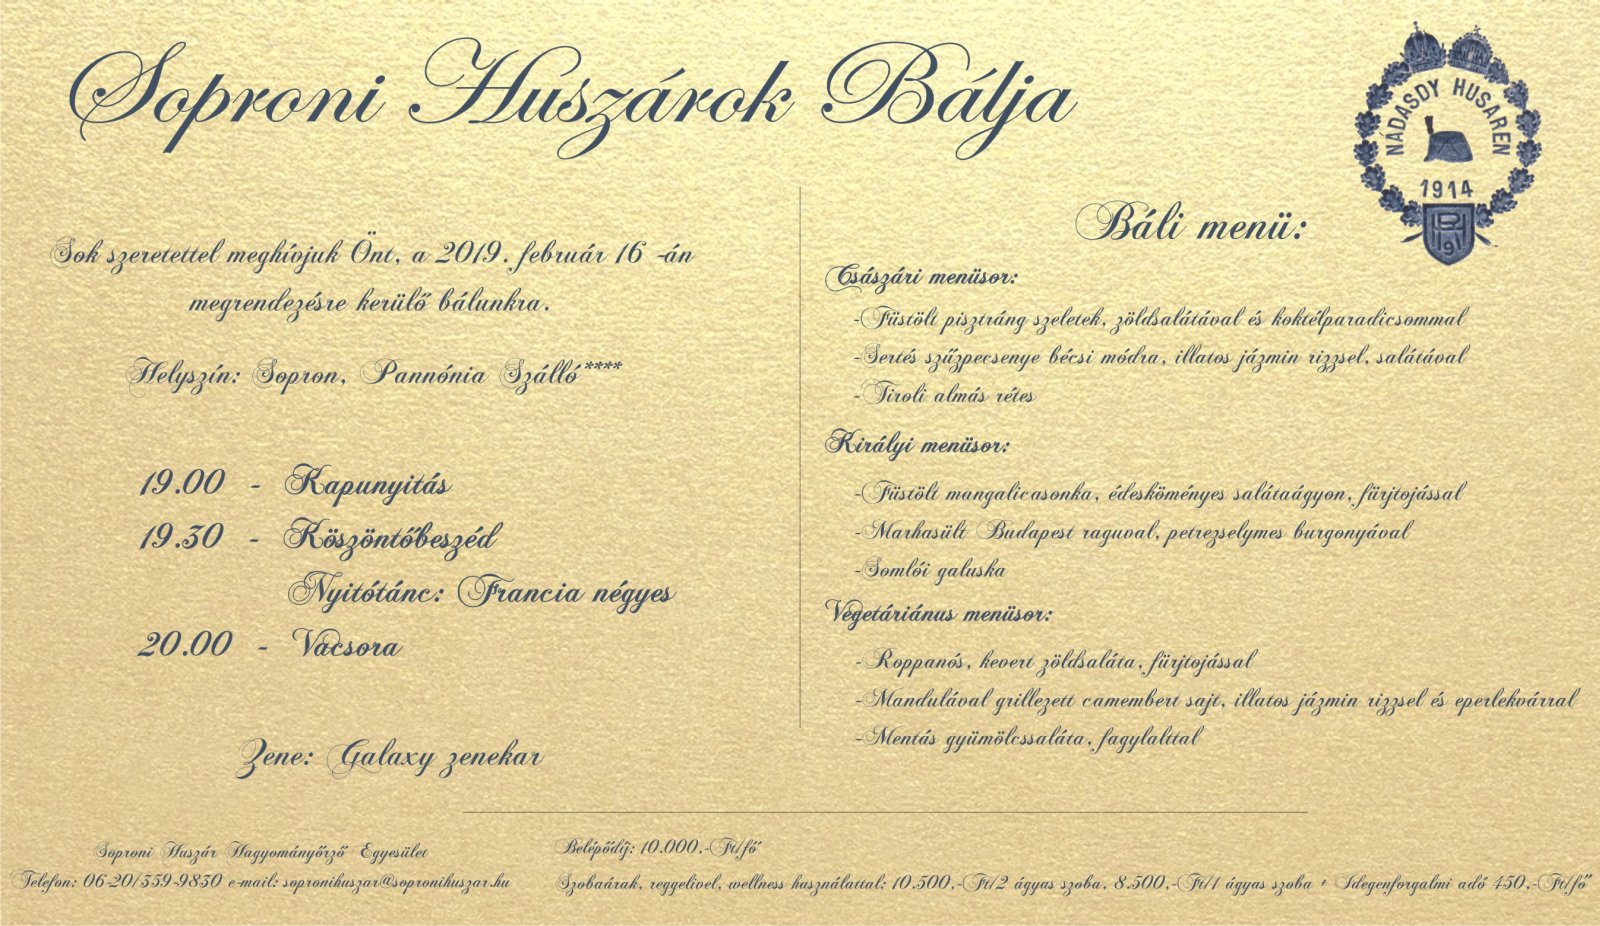 Soproni Huszárok Bálja
NÁDASDY HUSAREN
1914
Sok szeretettel meghívjuk Önt, a 2019. február 16 -án
megrendezésre kerülő bálunkra.
Helyszín: Sopron, Pannónia Szálló****
19.00 - Kapunyitás
19.30 - Köszöntőbeszéd
Nyitótánc: Francia négyes
20.00 - Vacsora
Zene: Galaxy zenekar
Báli menü:
Császári menüsor:
-Füstölt pisztráng szeletek, zöldsalátával és koktélparadicsommal
-Sertés szűzpecsenye bécsi módra, illatos jázmin rizzsel, salátával
-Tiroli almás rétes
Királyi menüsor:
-Füstölt mangalicasonka, édesköményes salátaágyon, fürjtojással
-Marhasült Budapest raguval, petrezselymes burgonyával
-Somlói galuska
Vegetáriánus menüsor:
-Roppanós, kevert zöldsaláta, fürjtojással
-Mandulával grillezett camembert sajt, illatos jázmin rizzsel és eperlekvárral
-Mentás gyümölcssaláta, fagylalttal
Soproni Huszár Hagyományőrző Egyesület
Telefon: 06-20/359-9830 e-mail: sopronihuszar@sopronihuszar.hu
Belépődíj: 10.000,-Ft/fő
Szobaárak, reggelivel, wellness használattal: 10.500,-Ft/2 ágyas szoba, 8.500,-Ft/1 ágyas szoba + Idegenforgalmi adó 450,-Ft/fő